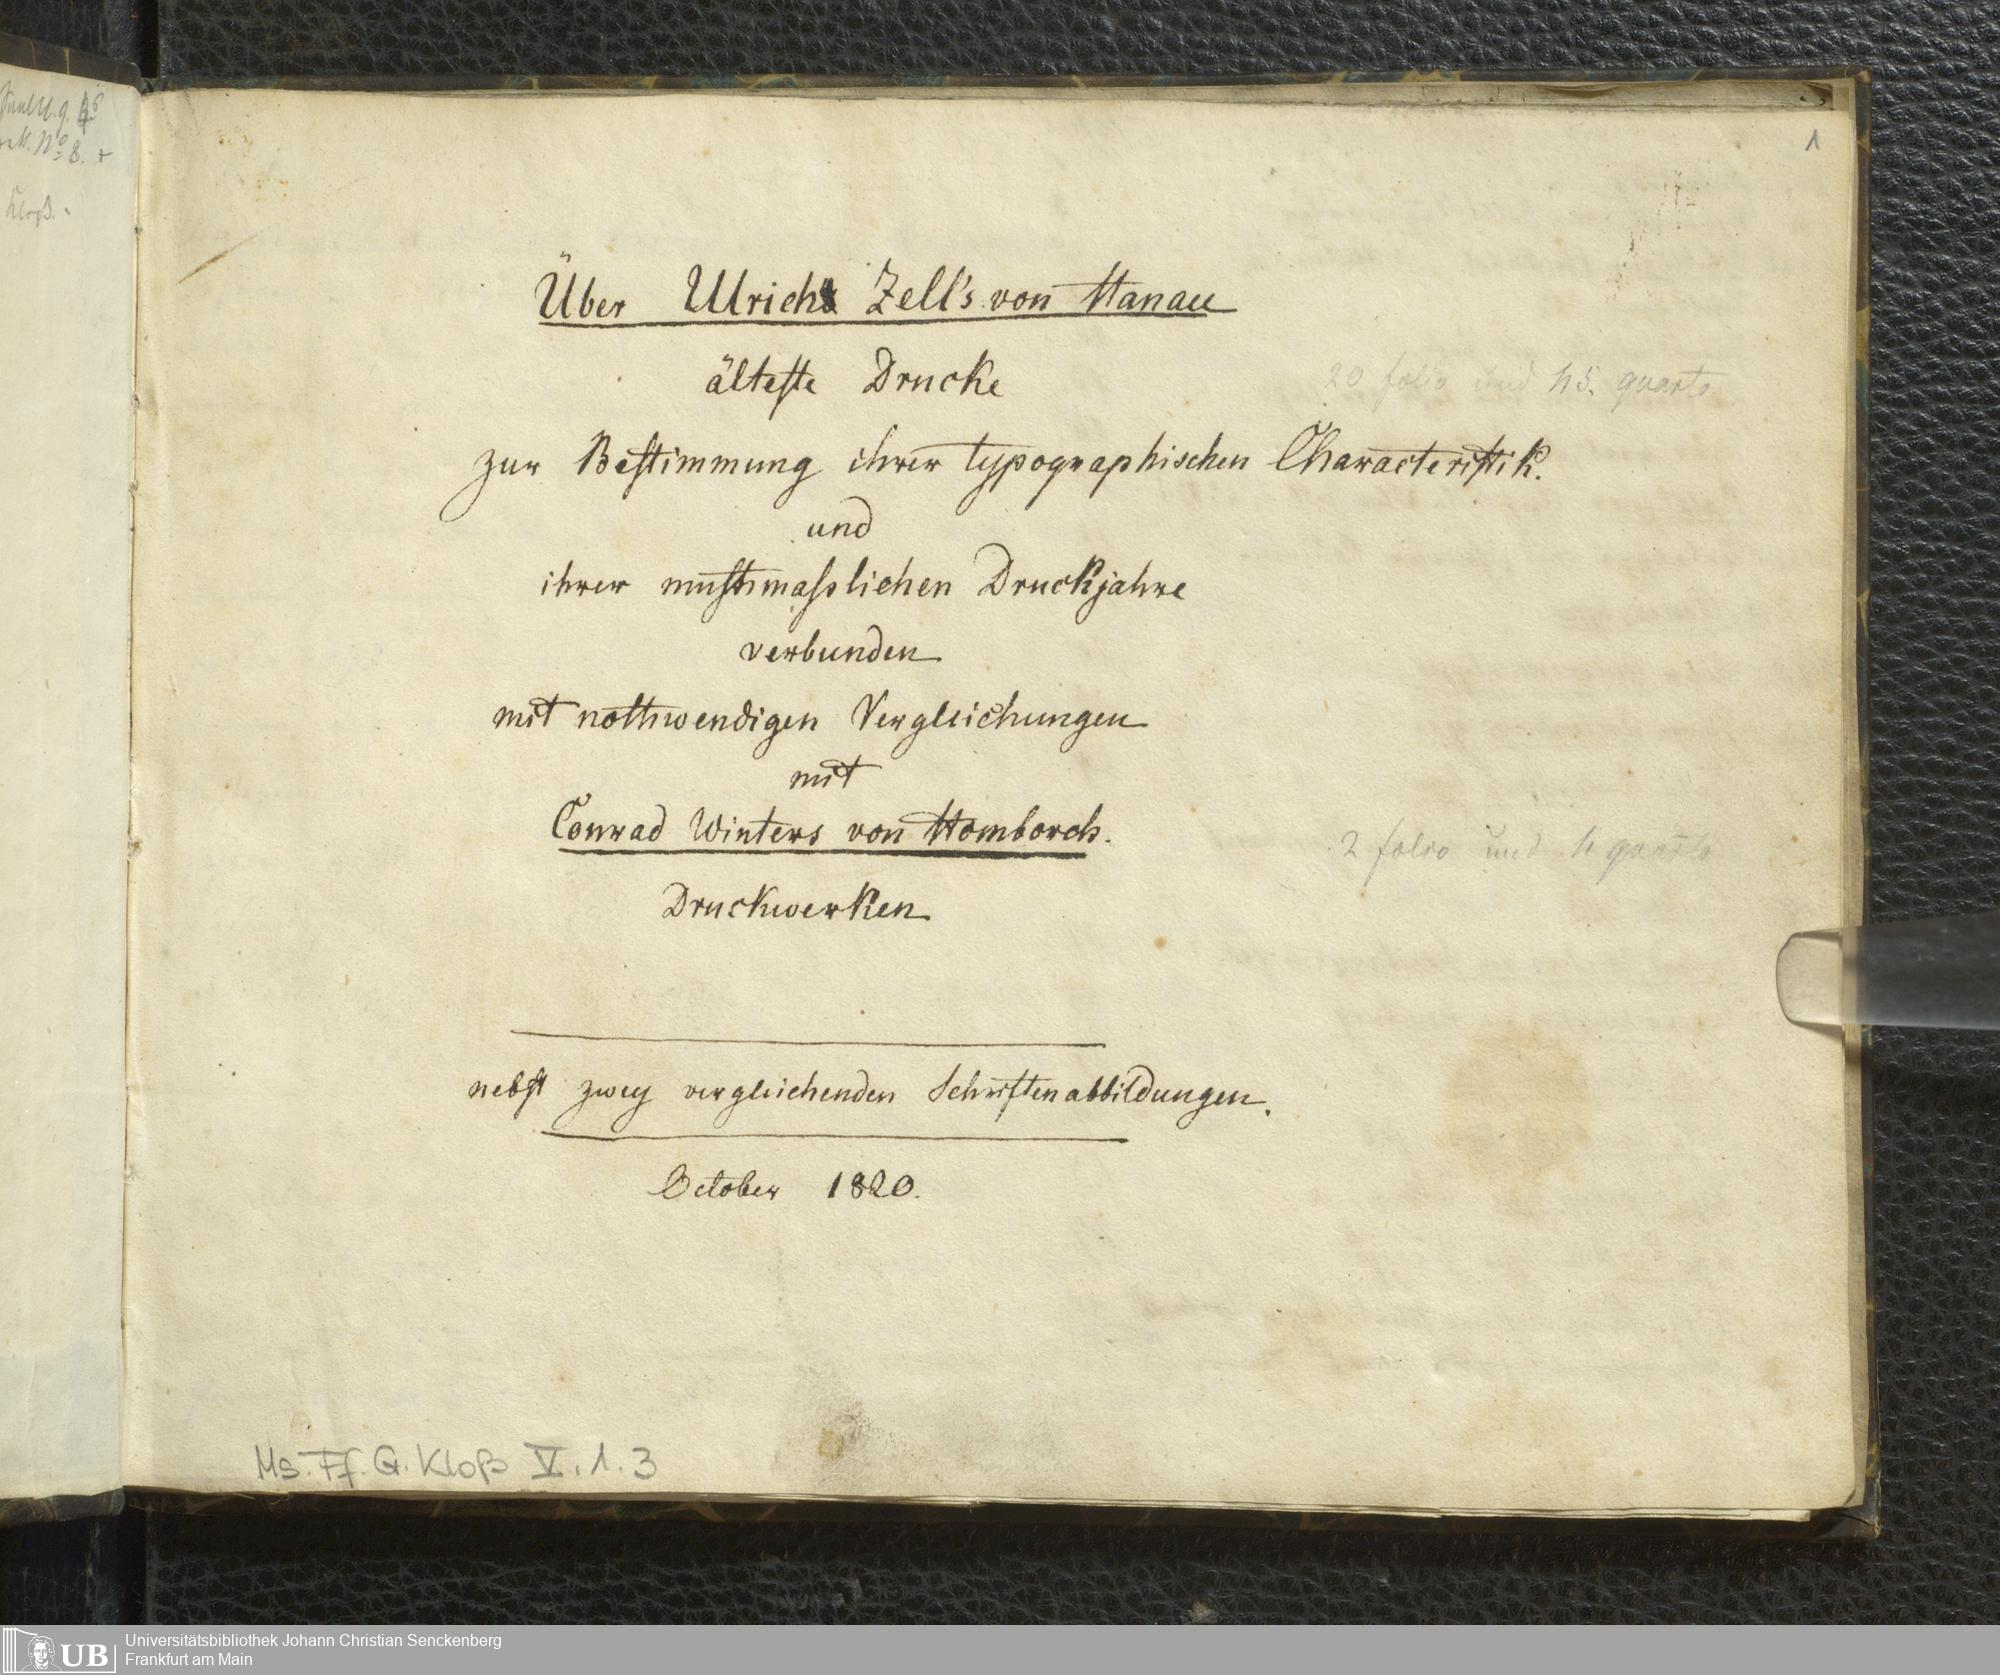 1
Über Ulrich Zell's von Hanau
älteste Drucke
20 folio und 45. quarto
zur Bestimmung ihrer typographischen Characteristik.
und
ihrer muthmasslichen Druckjahre
verbunden
mit nothwendigen Vergleichungen
mit
Conrad Winters von Homborch.
2 folio und 4 quarto
Druckwerken
nebst zwey vergleichenden Schriftenabbildungen.
October 1820.
Ms. Ff. G. Kloß V. 1. 3
No 8. +
Kloß.
UB
Universitätsbibliothek Johann Christian Senckenberg
Frankfurt am Main